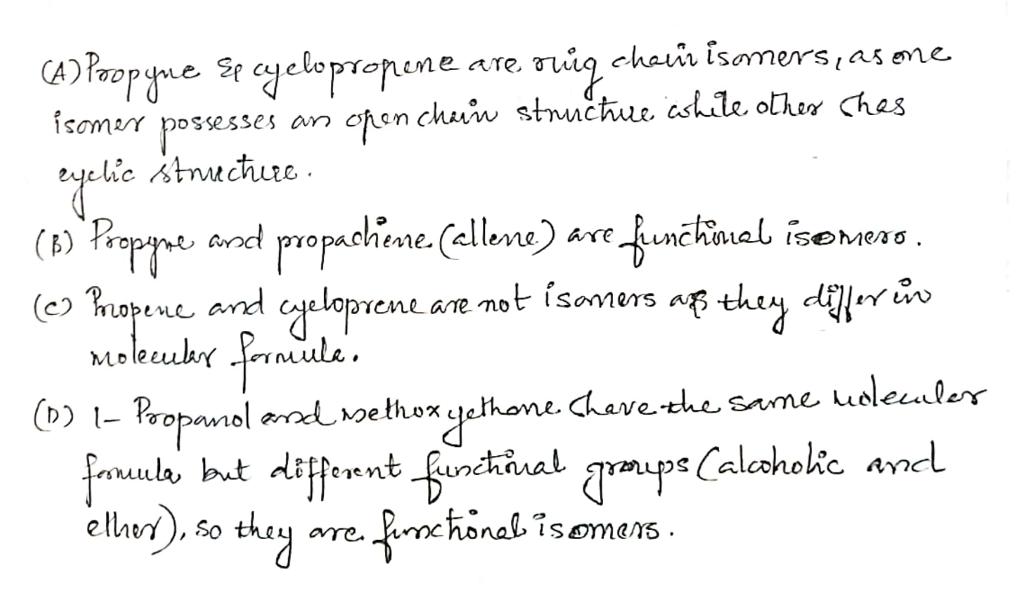 (A) Propyne & cyclopropene are ring chain isomers, as one
isomer possesses an open chain structure while other has
cyclic structure.
(B) Propyne and propadiene (allene) are functional isomers.
(C) Propene and cycloprene are not isomers as they differ in
molecular formula.
(D) 1- Propanol and methoxyethane have the same molecular
formula but different functional groups (alcoholic and
ether), so they are functional isomers.